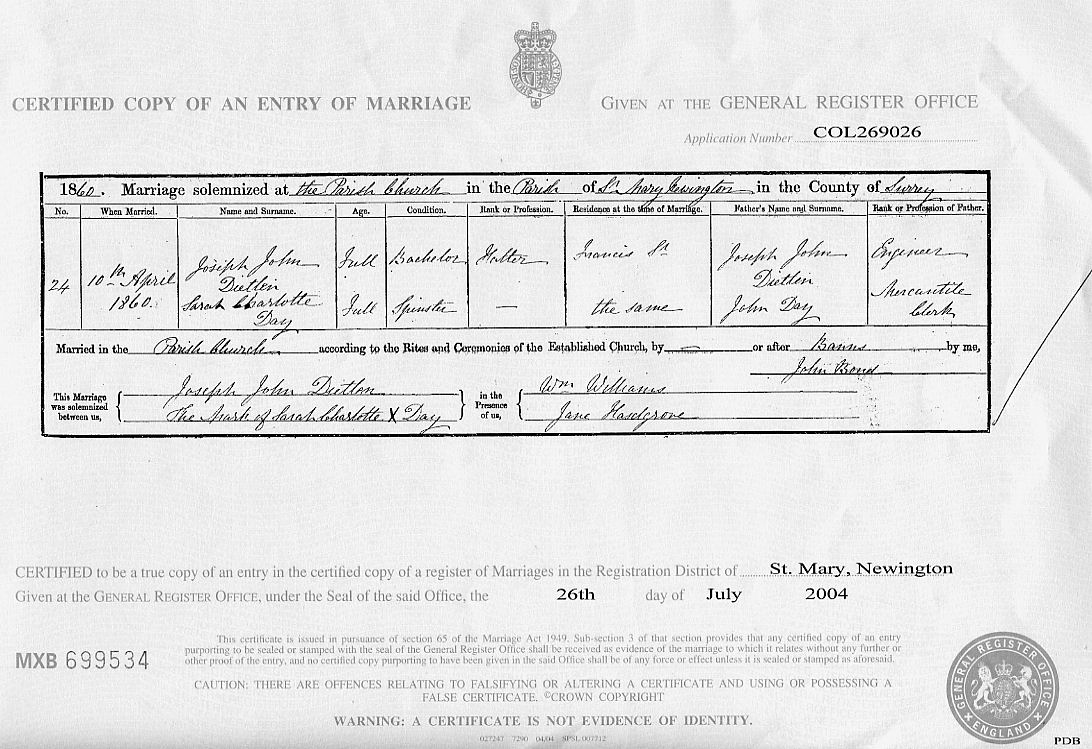 CERTIFIED COPY OF AN ENTRY OF MARRIAGE
GIVEN AT THE GENERAL REGISTER OFFICE
Application Number COL269026
1860. Marriage solemnized at the Parish Church in the Parish of St Mary Newington in the County of Surrey
No. When Married. Name and Surname. Age. Condition. Rank or Profession. Residence at the time of Marriage. Father's Name and Surname. Rank or Profession of Father.
24 10th April 1860. Joseph John Dietlen Full Bachelor Hatter Francis St Joseph John Dietlen Engineer
Sarah Charlotte Day Full Spinster — the same John Day Mercantile Clerk
Married in the Parish Church according to the Rites and Ceremonies of the Established Church, by — or after Banns by me,
John Bond
This Marriage was solemnized between us,
Joseph John Dietlen
The Mark of Sarah Charlotte X Day
in the Presence of us,
Wm Williams
Jane Hasdgrove
CERTIFIED to be a true copy of an entry in the certified copy of a register of Marriages in the Registration District of St. Mary, Newington
Given at the GENERAL REGISTER OFFICE, under the Seal of the said Office, the 26th day of July 2004
MXB 699534
This certificate is issued in pursuance of section 65 of the Marriage Act 1949. Sub-section 3 of that section provides that any certified copy of an entry
purporting to be sealed or stamped with the seal of the General Register Office shall be received as evidence of the marriage to which it relates without any further or
other proof of the entry, and no certified copy purporting to have been given in the said Office shall be of any force or effect unless it is sealed or stamped as aforesaid.
CAUTION: THERE ARE OFFENCES RELATING TO FALSIFYING OR ALTERING A CERTIFICATE AND USING OR POSSESSING A
FALSE CERTIFICATE. ©CROWN COPYRIGHT
WARNING: A CERTIFICATE IS NOT EVIDENCE OF IDENTITY.
027247 7290 04/04 SPSL 007712
GENERAL REGISTER OFFICE
ENGLAND
PDB